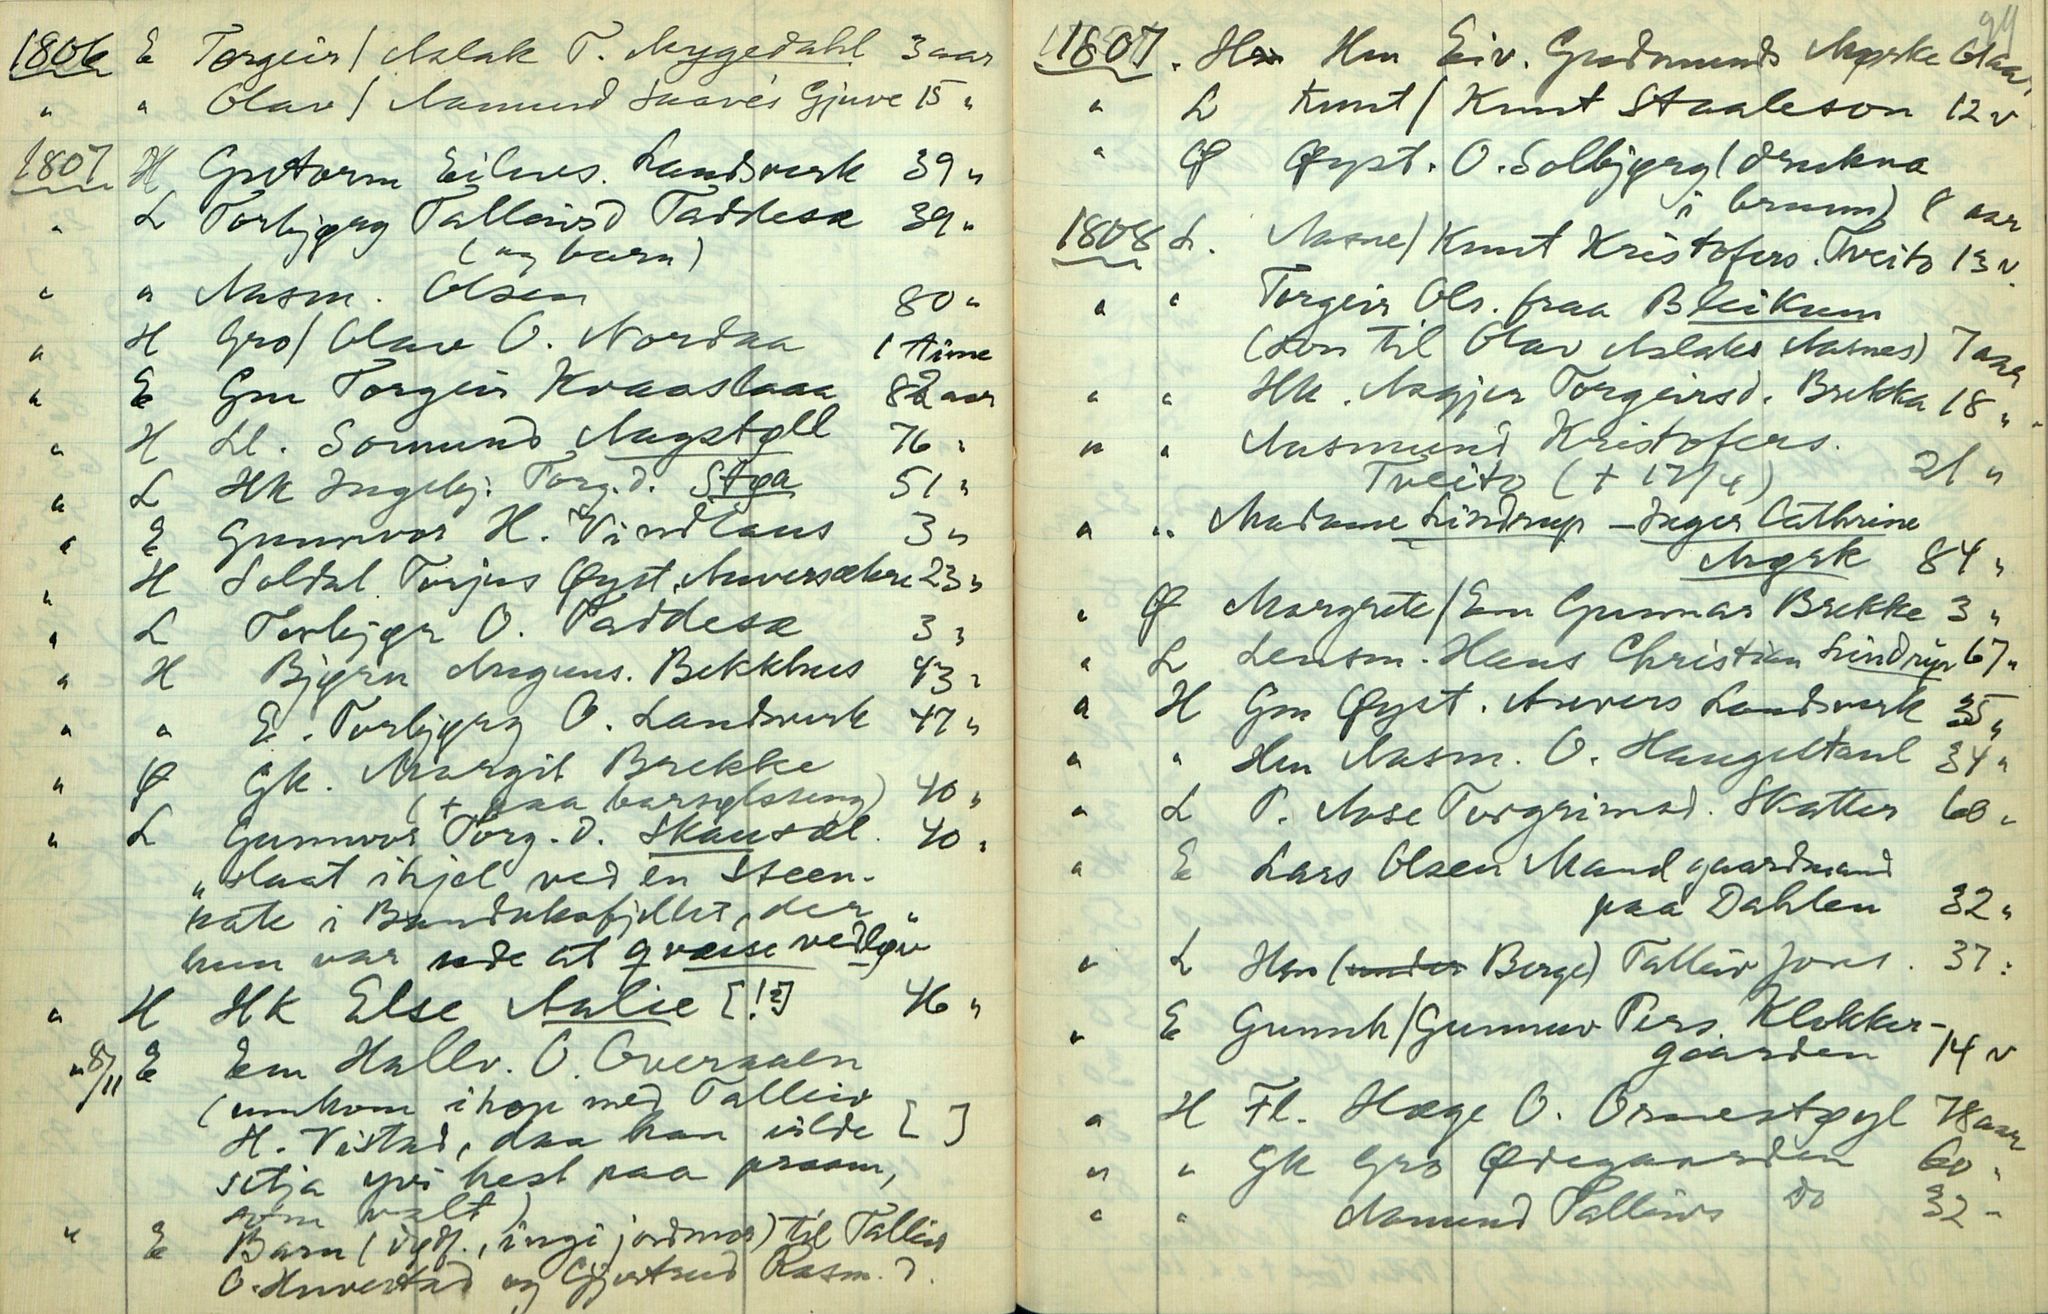 1806 E Torgeir / Aslak T. Mygedahl 3 aar
" " Olav / Aamund Saave's Gjuve 15 "
1807 H Guttorm Eilevs. Landsverk 39 "
" L Torbjørg Talleivsd Taddesæ 39 "
(og barn)
" " Aasm. Olsen 80 "
" H Gro / Olav O. Nordaa 1 time
" E Gm Torgeir Kvaaslaaa 82 aar
" H Ll. Somund Augstøll 76 "
" L Hk Ingebj. Torg.d. Støa 51 "
" E Gunnvor H. Vindlaus 3 "
" H Soldat Torjus Øyst. Anversækre 23 "
" L Torbjør O. Taddesæ 3 "
" H Bjørn Auguns. Bekkhus 43 "
" " E. Torbjørg O. Landsverk 47 "
" Ø Gk. Margit Brekke
(+ paa barselsseng) 40 "
" L Gunnvor Torg.d. Skausdal. 40 "
" slaat ihjel ved en Steen-
rate i Bandaksfjellet, der "
hun var ude at qvæsse vedløv
" H Hk Else Aalie [!?] 46 "
" 8/11 E Em Hallv. O. Overaaen
(umkom ihop med Talleiv
H. Vistad, daa han vilde [ ]
sitja yvi hest paa praam,
som valt)
" E Barn (udf., ingi jordmor) til Talleiv
O. Huverstad og Gjertrud Rasm.d.
94
1807. Hm Eiv. Gudmunds Mørke 61 aar
" L Knut / Knut Staaleson 12 v
" Ø Øyst. O. Solbjørg (drukna
i brunn) 8 aar
1808 L. Aasne / Knut Kristofers. Tveito 13 v.
" " Torgeir Ols. fraa Bleikum
(son til Olav Aslaks Aasnes) 7 aar
" " Hk. Asgjer Torgeirsd. Brekka 18 "
" " Aasmund Kristofers.
Tveito (+ 17/4) 21 "
" " Madame Lindrup - Inger Cathrine
Mørk 84 "
" Ø Margrete / Em Gunnar Brekke 3 "
" L Lensm. Hans Christian Lindrup 67 "
" H Gm Øyst. Anvers Landsverk 35 "
" " Hm Aasm. O. Haugeltaul 34 "
" L T. Aase Torgrimsd. Skatter 60 "
" E Lars Olsen Mand gaardmand
paa Dahlen 32 "
" L Hm (under Berge) Talleiv Jons. 37 "
" E Gunnh / Gunnuv Pers. Klokker-
gaarden 14 v
" H Fl. Hæge O. Ormestøyl 78 aar
" " Gk Gro Ødegaarden 60 "
" " Aamund Talleivs do 32 "